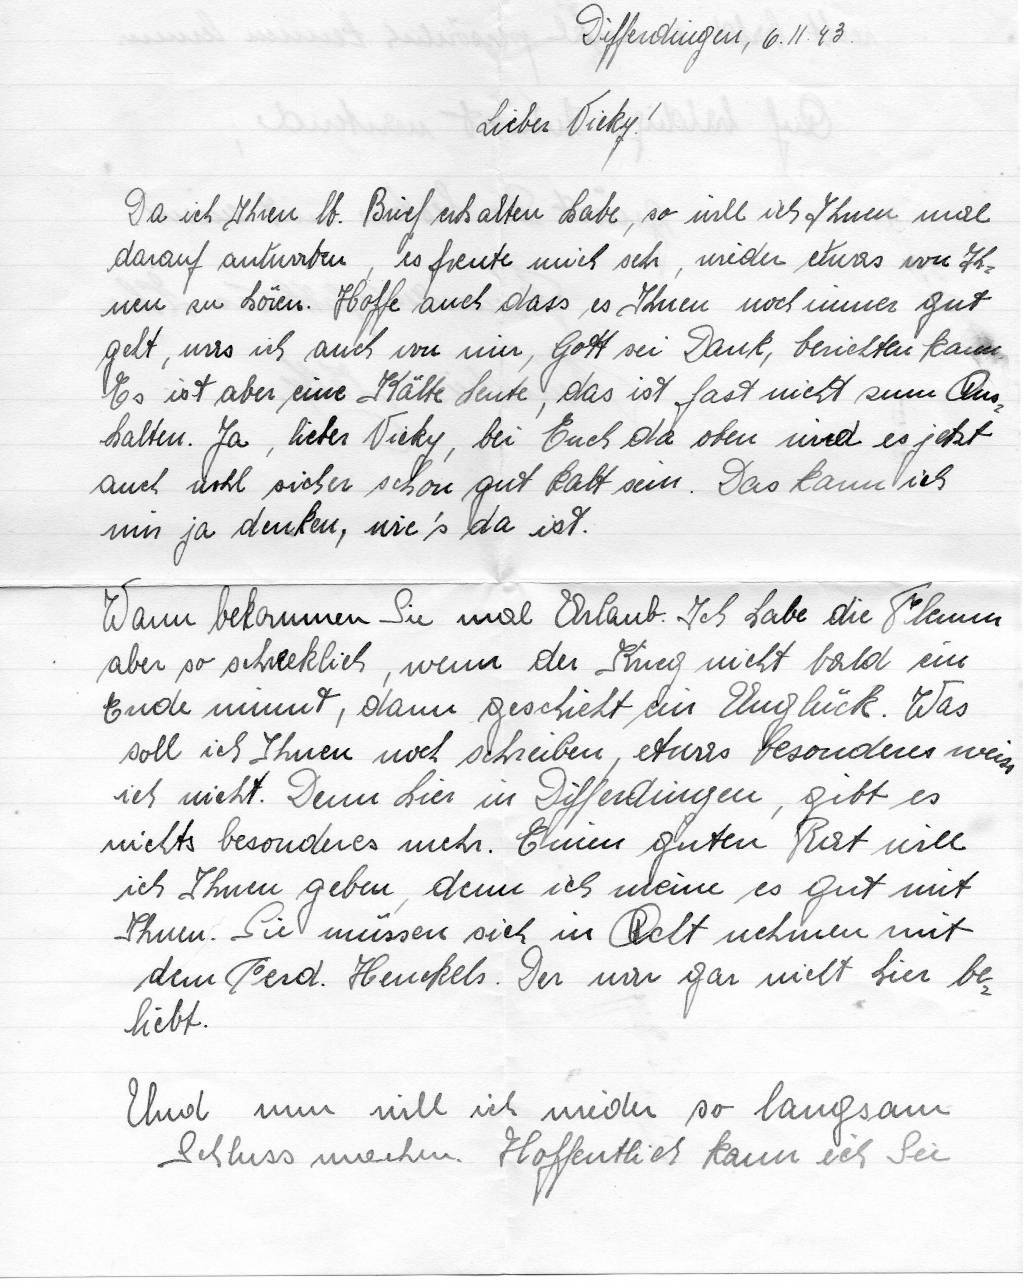 Differdingen, 6.11.43.
Lieber Vicky!
Da ich Ihren lb. Brief erhalten habe, so will ich Ihnen mal
darauf antworten, es freute mich sehr, wieder etwas von Ih-
nen zu hören. Hoffe auch dass es Ihnen noch immer gut
geht, was ich auch von mir, Gott sei Dank, berichten kann.
Es ist aber eine Kälte heute, das ist fast nicht zum Aus-
halten. Ja, lieber Vicky, bei Euch da oben wird es jetzt
auch wohl sicher schon gut kalt sein. Das kann ich
mir ja denken, wie's da ist.
Wann bekommen Sie mal Urlaub. Ich habe die Flemm
aber so schrecklich, wenn der Krieg nicht bald ein
Ende nimmt, dann geschieht ein Unglück. Was
soll ich Ihnen noch schreiben, etwas besonderes weiss
ich nicht. Denn hier in Differdingen, gibt es
nichts besonderes mehr. Einen guten Rat will
ich Ihnen geben, denn ich meine es gut mit
Ihnen. Sie müssen sich in Acht nehmen mit
dem Ferd. Henckels. Der war gar nicht hier be-
liebt.
Und nun will ich wieder so langsam
Schluss machen. Hoffentlich kann ich Sie